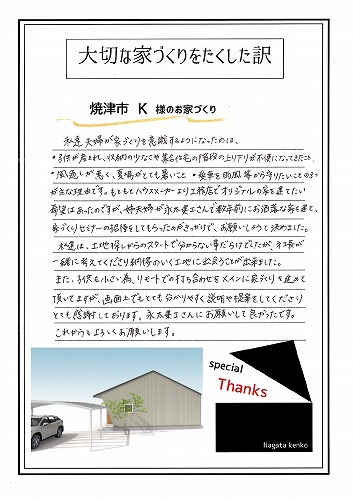 大切な家づくりをたくした訳
焼津市 K 様のお家づくり
私達夫婦が家づくりを意識するようになったのは、
・子供が産まれ、収納の少なさや集合住宅の階段の上り下りが不便になってきたこと、
・風通しが悪く、夏場がとても暑いこと ・愛車を雨風等から守りたいことの3つ
が主な理由です。もともとハウスメーカーより工務店でオリジナルの家を建てたい
希望はあったのですが、姉夫婦が永太建工さんで数年前にお洒落な家を建て、
家づくりセミナーの招待をしてもらったのがきっかけで、お願いしようと決めました。
私達は、土地探しからのスタートで分からない事だらけでしたが、社長が
一緒に考えてくださり納得のいく土地に出会うことが出来ました。
また、子供も小さい為、リモートでの打ち合わせをメインに家づくりを進めて
頂いてますが、画面上でもとても分かりやすく説明や提案をしてくださり
とても感謝しております。永太建工さんにお願いして良かったです。
これからもよろしくお願いします。
special
Thanks
Nagata kenko